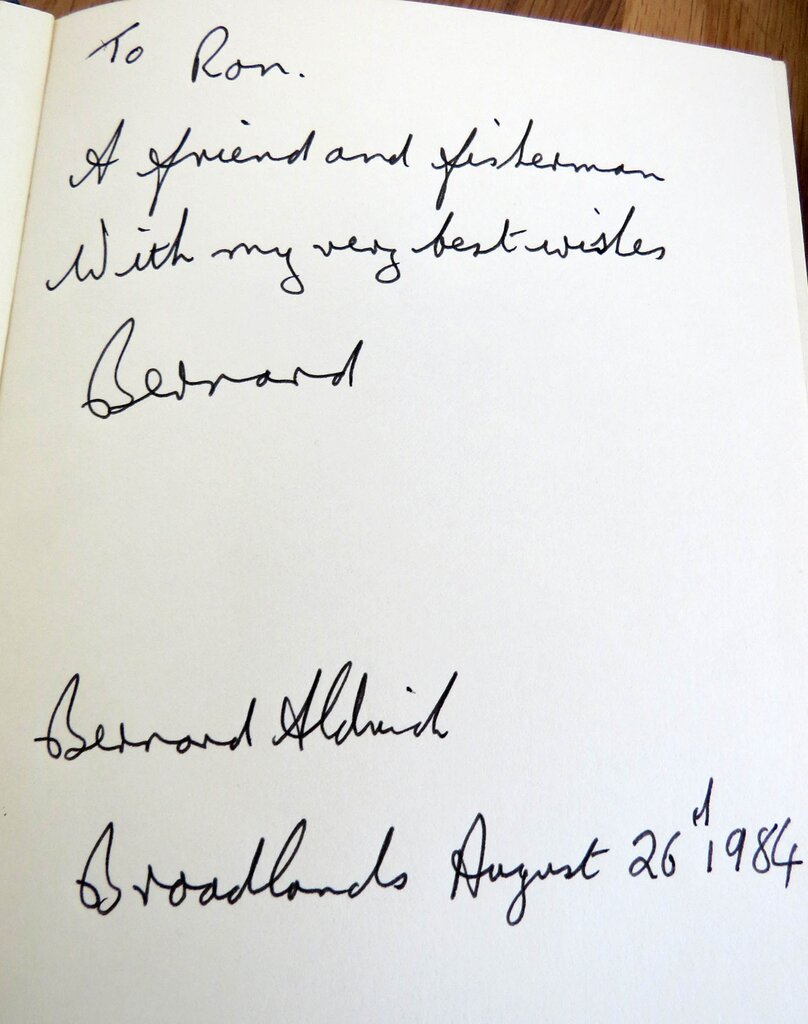 To Ron.
A friend and fisherman
With my very best wishes
Bernard
Bernard Aldrich
Broadlands August 26d 1984